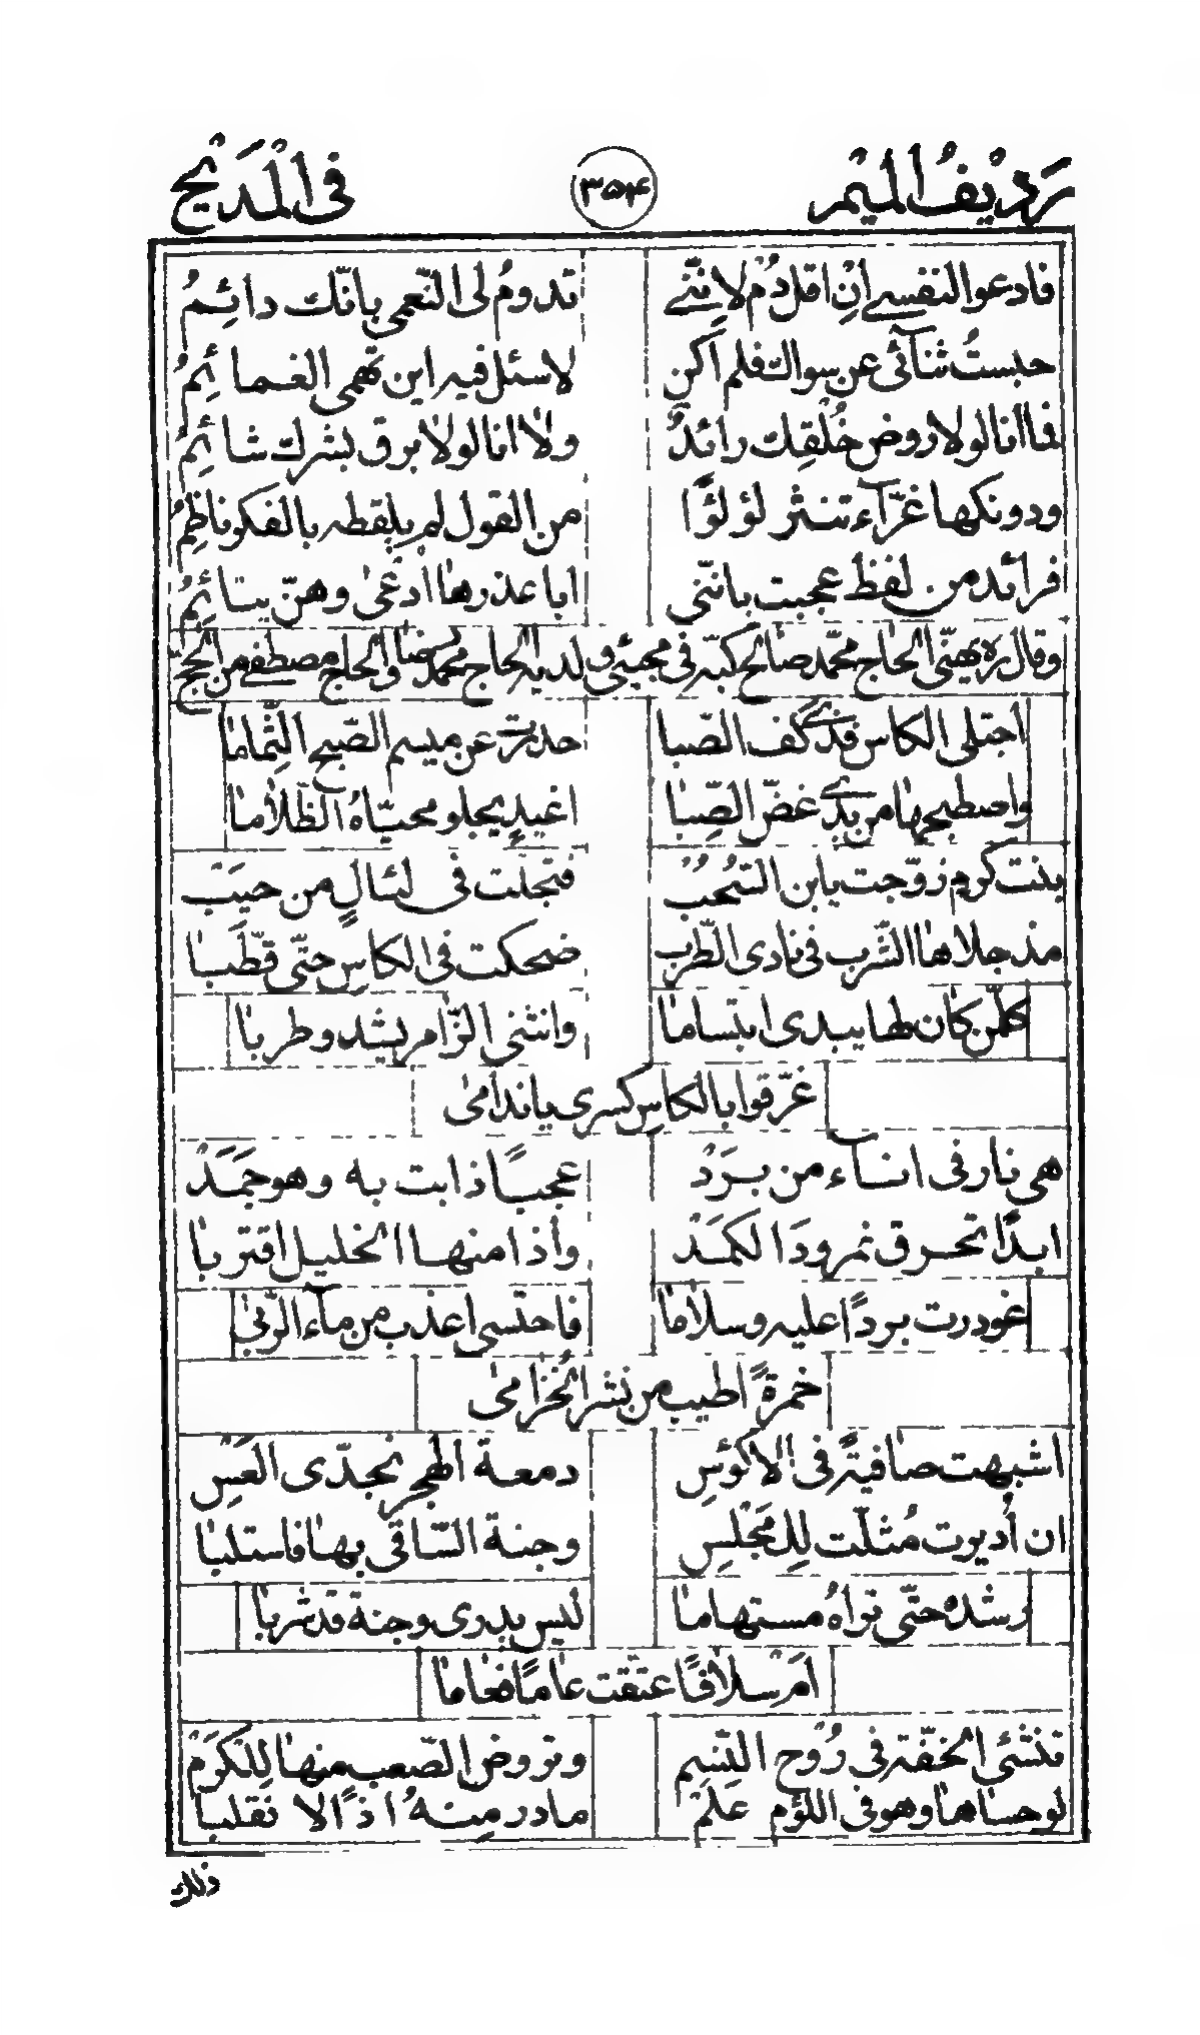 رَدِيْفُ الْمِيْمِ ٣٥٤ فِى الْمَدِيْحِ
فادعو لنفسے اِنْ اقل دُمْ لاِنّنے تدومُ لى النّعمى بانّك دائِمُ
حبستُ ثنآئى عن سواك فلم اكن لاسئل فيه اين تهمى الغمائِمُ
فما انا لولا روض خُلقِك رائدٌ ولا انا لولا برق بشرك شائِمُ
ودونكها غرّآء تنثر لؤلؤًا من القول لم يلقطه بالفكر ناظِمُ
فرائد من لفظ عجبت باننّى ابا عذرها ادعىٰ وهنّ يتائِمُ
وقال ره يهنّى الحاج محمّد صالح كبّه فى مجيئى ولديه الحاج محمد رضا والحاج مصطفے من الحجّ
اجتلى الكاس فذے كف الصّبا حدرت عن مبسم الصّبح الّلثاما
واصطبحها من يدے غضّ الصِّبا اغيدٍ يجلو محيّاهُ الظّلاما
بنت كرم زوّجت بابن السُّحُبْ فتجلّت فى لئالٍ من حبَبْ
مذ جلاها الشّرب فى نادى الطّرب ضحكت فى الكاس حتّى قطّبَا
كلّ من كان لها يبدى ابتساما وانثنى الزّامر يشدو طربا
غرّقوا بالكاس كسرى يا ندامىٰ
هى نار فى انآء من بَرَدْ عجبًا ذابت به وهو جَمَدْ
ابدًا تحرق نمرودَ الكمَدْ واذا منها الخليل اقتربا
غودرت بردًا عليه وسلاما فاحتسى اعذب من مآء الرّبىٰ
خمرةً اطيب من نشر الخُزامىٰ
اشبهت صافيةً فى الاكؤسِ دمعة الهجر بخدّى العَسِ
ان اُديرت مُثلّت لِلمَجْلِسِ وجنة السّاقى بها فاستلبا
رشده حتّى تراهُ مستهاما ليس يدرى وجنة قد شربا
امْ سلافًا عتقت عامًا فعاما
تنشئى الخفّة فى رُوْح النّسيم وتروض الصّعب منها لِلكَرَمْ
لو حساها وهو فى اللؤم عَلَمْ مادر مِنهُ اذًا لا نقلبا
ذلك